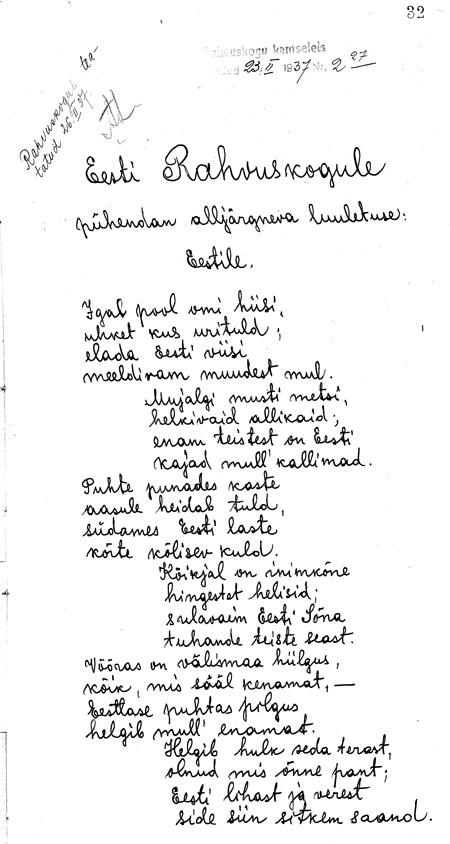 32
Rahvuskogu kantseleis
23. II 1937 Nr. 2 27
Rahvuskogule tea-
tatud 26.II 37
Eesti Rahvuskogule
pühendan alljärgneva luuletuse:
Eestile.
Igal pool omi hiisi,
uhket kus urituld;
elada Eesti viisi
meeldivam muudest mul.
Mujalgi musti metsi,
helkivaid allikaid;
enam teistest on Eesti
kajad mull' kallimad.
Puhte punades kaste
aasule heidab tuld,
südames Eesti laste
kõite kõlisev kuld.
Kõikjal on inimkõne
hingestet helisid;
sulavaim Eesti Sõna
tuhande teiste seast.
Võõras on välismaa hiilgus,
kõik, mis sääl kenamat, —
Eestlase puhtas pilgus
helgib mull' enamat.
Helgib hulk seda terast,
olnud mis õnne pant;
Eesti lihast ja verest
side siin sitkem saand.